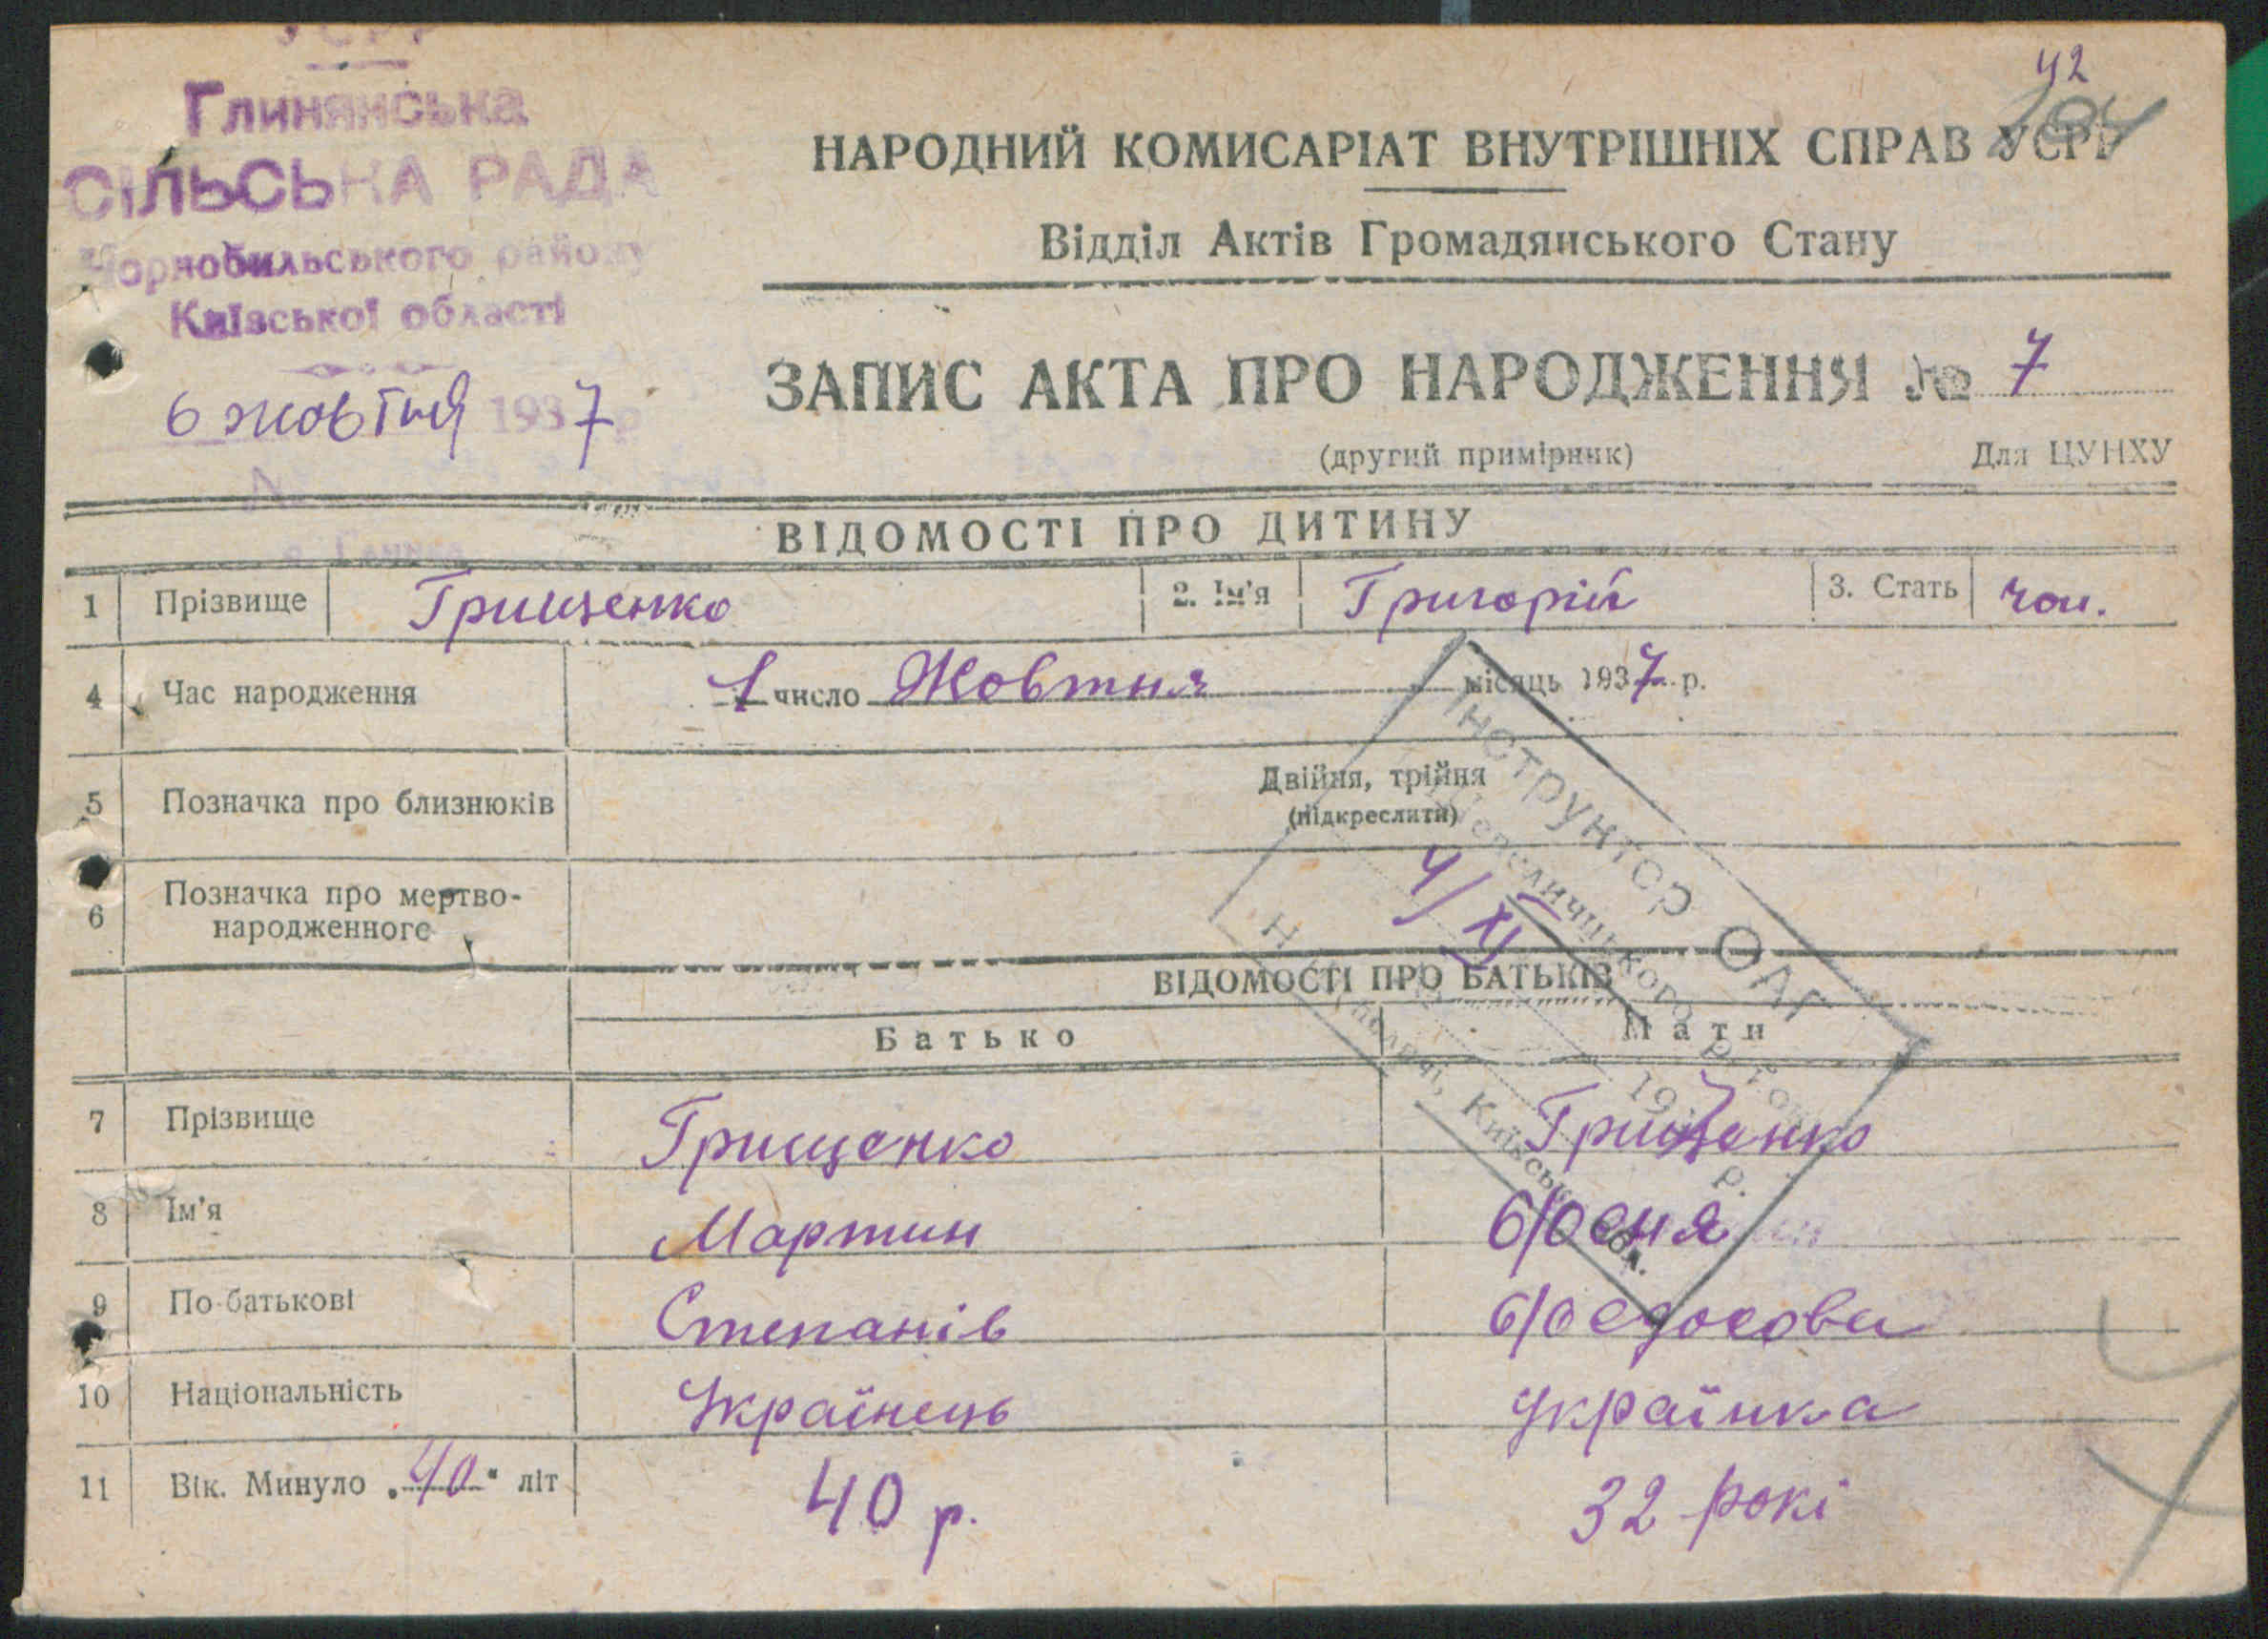 УСРР
Глинянська
СІЛЬСЬКА РАДА
Чорнобильського району
Київської області
6 жовтня 1937 р.
42
НАРОДНИЙ КОМИСАРІАТ ВНУТРІШНІХ СПРАВ УСРР
Відділ Актів Громадянського Стану
ЗАПИС АКТА ПРО НАРОДЖЕННЯ № 7
(другий примірник) Для ЦУНХУ
ВІДОМОСТІ ПРО ДИТИНУ
1 Прізвище Грищенко 2. Ім'я Григорій 3. Стать чол.
4 Час народження 1 число Жовтня місяць 1937 р.
5 Позначка про близнюків Двійня, трійня
(підкреслити)
6 Позначка про мертво-
народженного
Інструктор ОАГ
району
4/XI
19 р.
Київськ. обл.
ВІДОМОСТІ ПРО БАТЬКІВ
Батько Мати
7 Прізвище Грищенко Грищенко
8 Ім'я Мартин
9 По-батькові Степанів
10 Національність Українець українка
11 Вік. Минуло „40" літ 40 р. 32 рокі